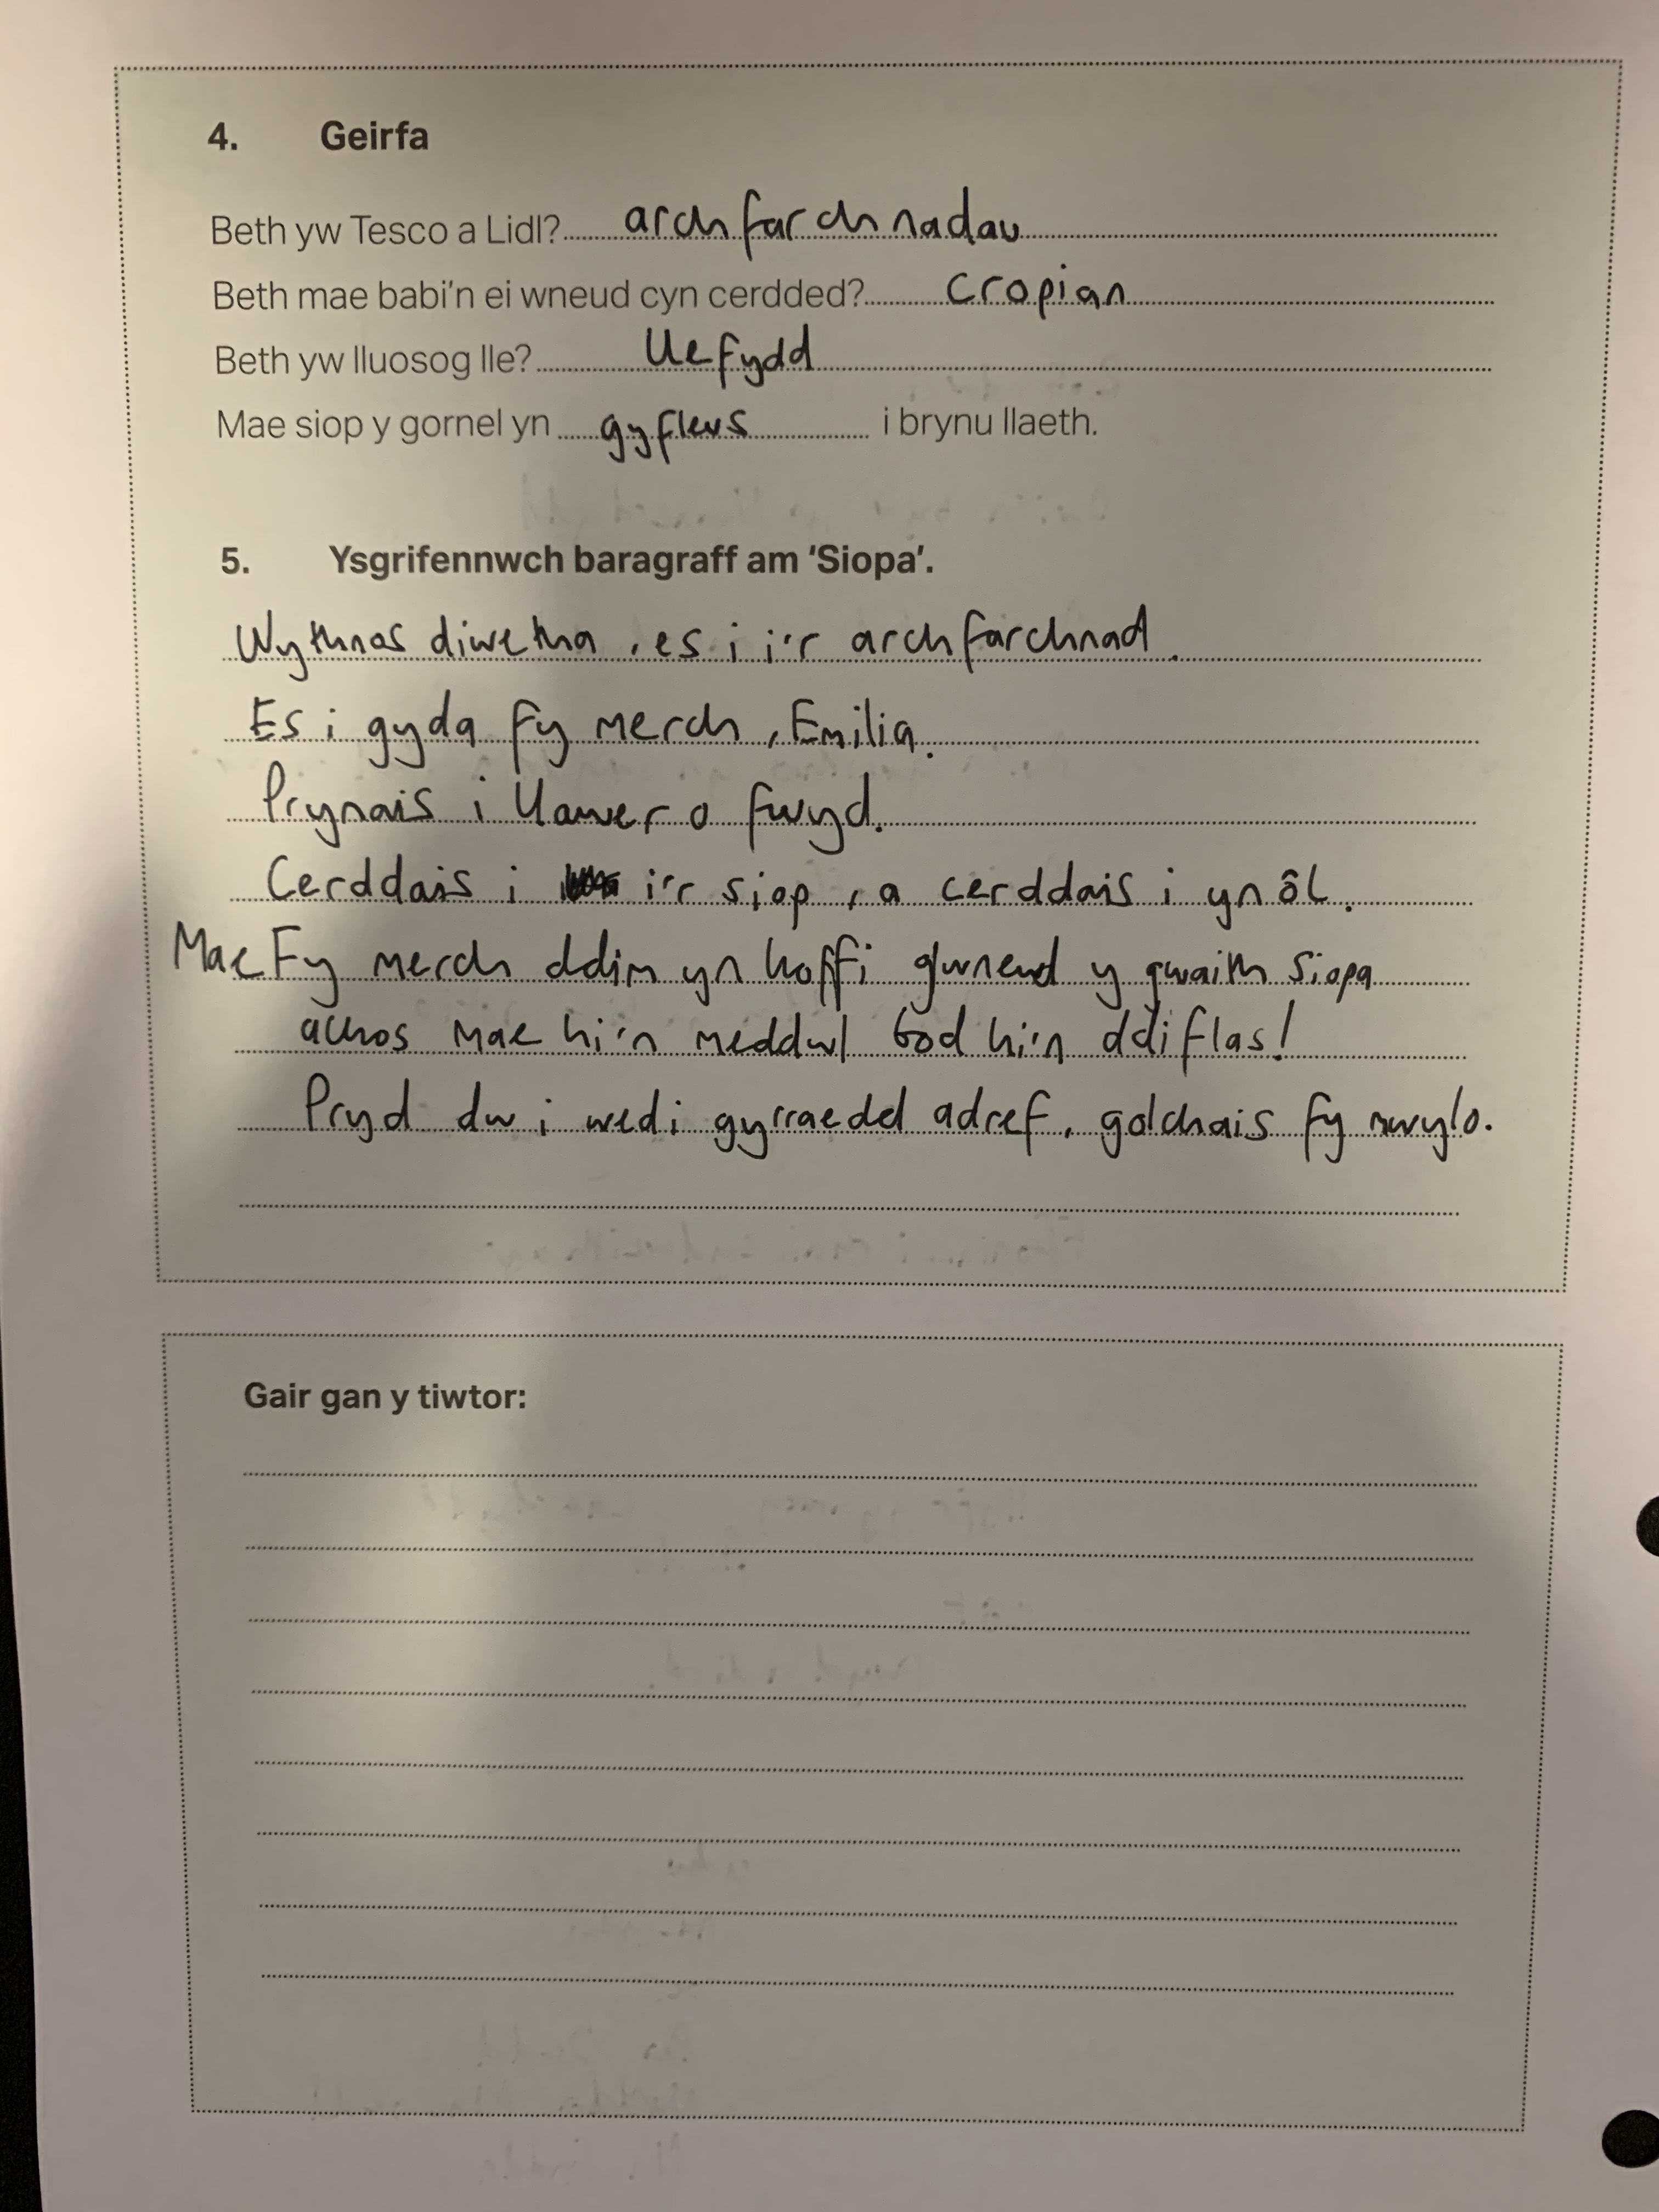 4. Geirfa
Beth yw Tesco a Lidl? archfarchnadau
Beth mae babi'n ei wneud cyn cerdded? cropian
Beth yw lluosog lle? llefydd
Mae siop y gornel yn gyfleus i brynu llaeth.
5. Ysgrifennwch baragraff am 'Siopa'.
Wythnos diwetha, es i i'r archfarchnad.
Es i gyda fy merch, Emilia.
Prynais i llawer o fwyd.
Cerddais i i'r siop, a cerddais i yn ôl.
Mae Fy merch ddim yn hoffi gwneud y gwaith siopa
achos mae hi'n meddwl bod hi'n ddiflas!
Pryd dw i wedi gyrraedd adref, golchais fy nwylo.
Gair gan y tiwtor: